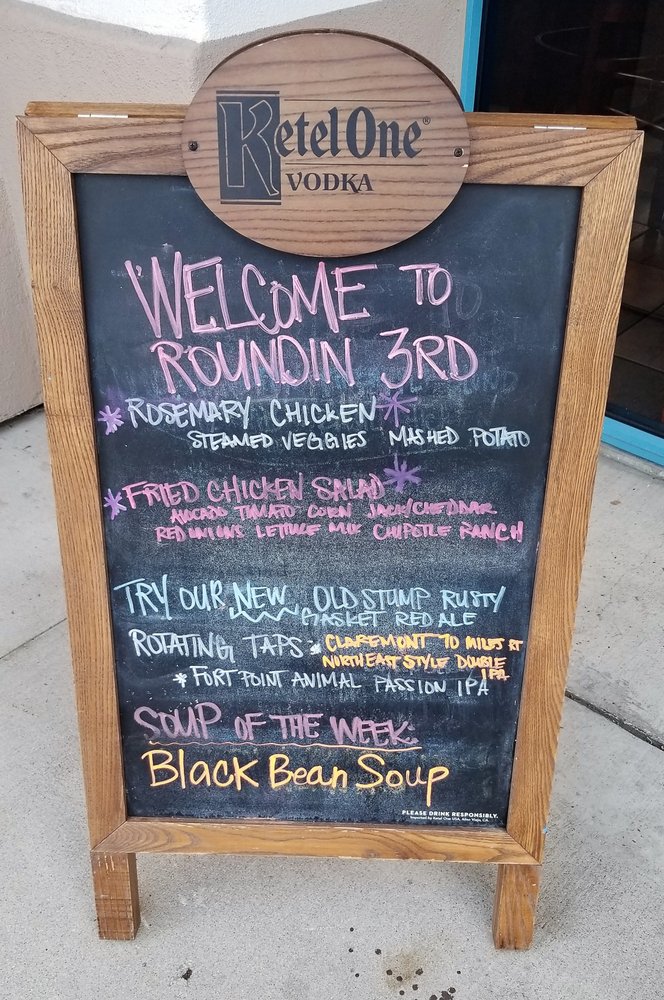 Ketel One®
VODKA
WELCOME TO
ROUNDIN 3RD
ROSEMARY CHICKEN
STEAMED VEGGIES MASHED POTATO
FRIED CHICKEN SALAD
AVOCADO TOMATO CORN JACK/CHEDDAR
RED ONIONS LETTUCE MIX CHIPOTLE RANCH
TRY OUR NEW OLD STUMP RUSTY
GASKET RED ALE
ROTATING TAPS * CLAREMONT 70 MILES RT
NORTHEAST STYLE DOUBLE
IPA
* FORT POINT ANIMAL PASSION IPA
SOUP OF THE WEEK:
Black Bean Soup
PLEASE DRINK RESPONSIBLY.
Imported by Ketel One USA, Aliso Viejo, CA.